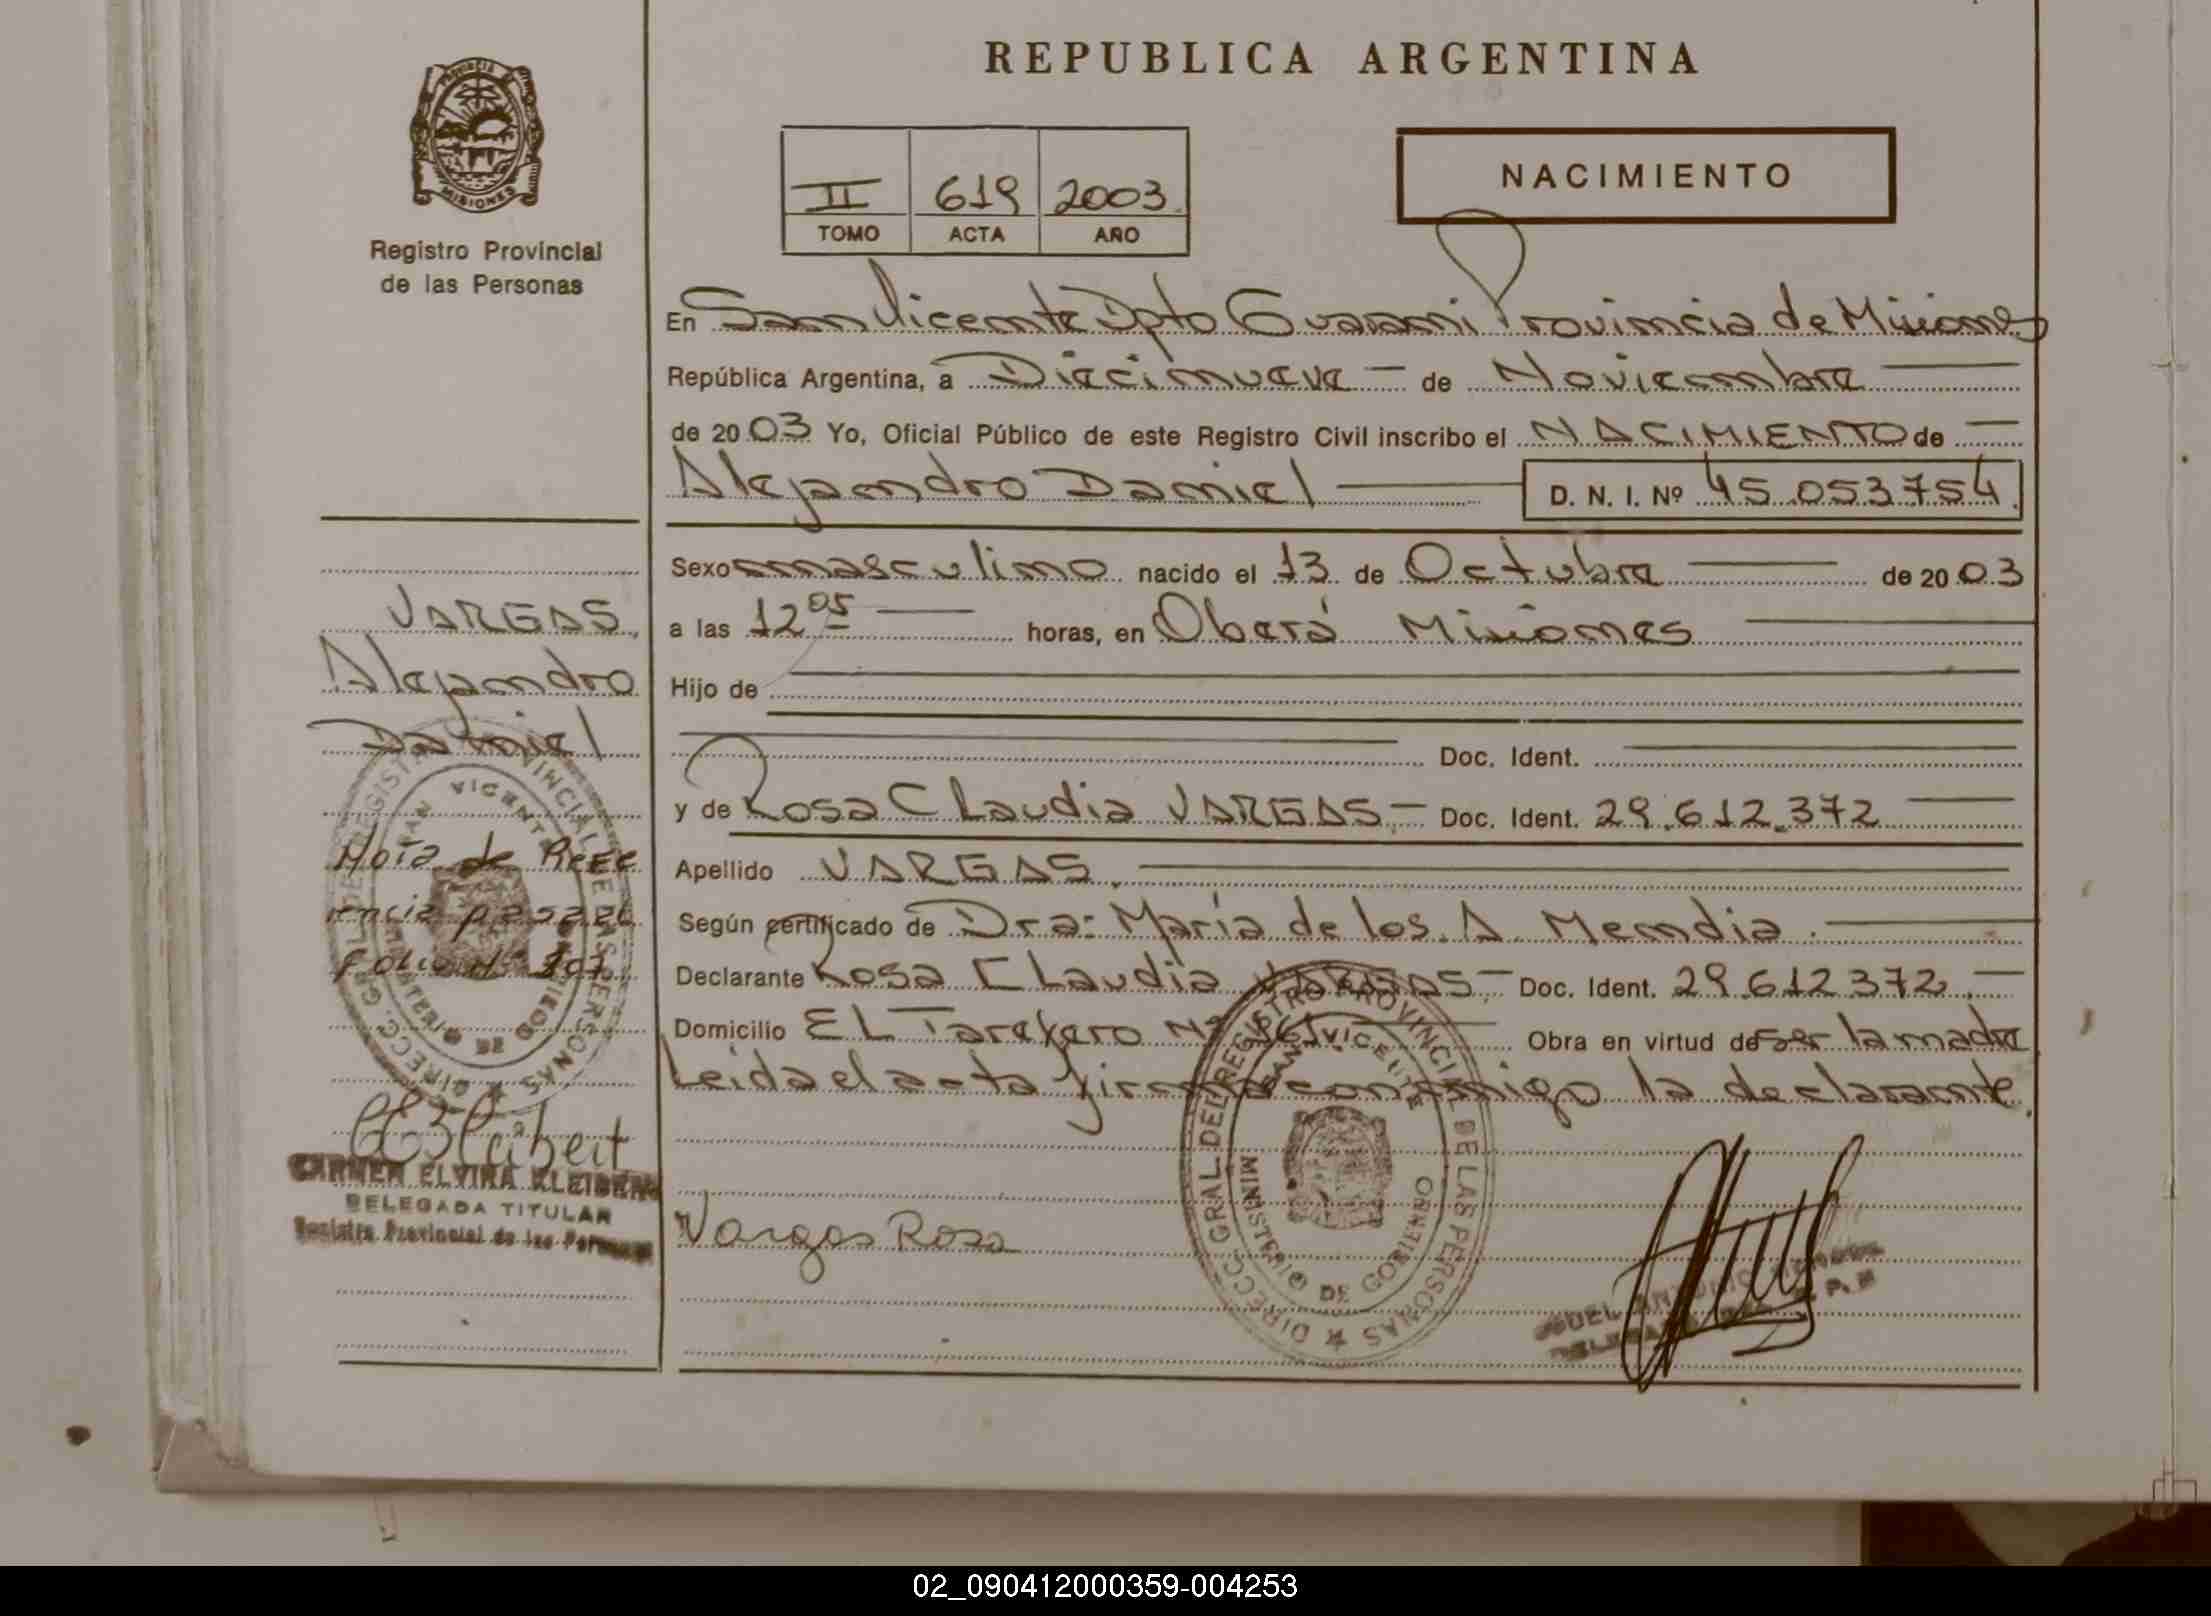 REPUBLICA ARGENTINA
PROVINCIA DE MISIONES
Registro Provincial
de las Personas
II 619 2003
TOMO ACTA AÑO
NACIMIENTO
En San Vicente Dpto Guaraní Provincia de Misiones
República Argentina, a Diecinueve de Noviembre
de 2003 Yo, Oficial Público de este Registro Civil inscribo el NACIMIENTO de
Alejandro Daniel D. N. I. Nº 45.053754
Sexo masculino nacido el 13 de Octubre de 2003
a las 12 05 horas, en Oberá Misiones
Hijo de
Doc. Ident.
y de Rosa Claudia VARGAS.- Doc. Ident. 29.612.372
Apellido VARGAS.
Según certificado de Dra: María de los A. Mendia.
Declarante Rosa Claudia VARGAS.- Doc. Ident. 29.612.372.
Domicilio EL Tarexero Nº Obra en virtud de ser la madre
Leida el acta firma conmigo la declarante.
Vargas Rosa
VARGAS,
Alejandro
Daniel
Nota de Refe
rencia pasa al
folio Nº 307
CARMEN ELVIRA
DELEGADA TITULAR
Registro Provincial de las Personas
DIRECC. GRAL. DEL REGISTRO PROVINCIAL DE LAS PERSONAS
SAN VICENTE
MINISTERIO DE GOBIERNO
DIRECC. GRAL. DEL REGISTRO PROVINCIAL DE LAS PERSONAS
SAN VICENTE
MINISTERIO DE GOBIERNO
02_090412000359-004253